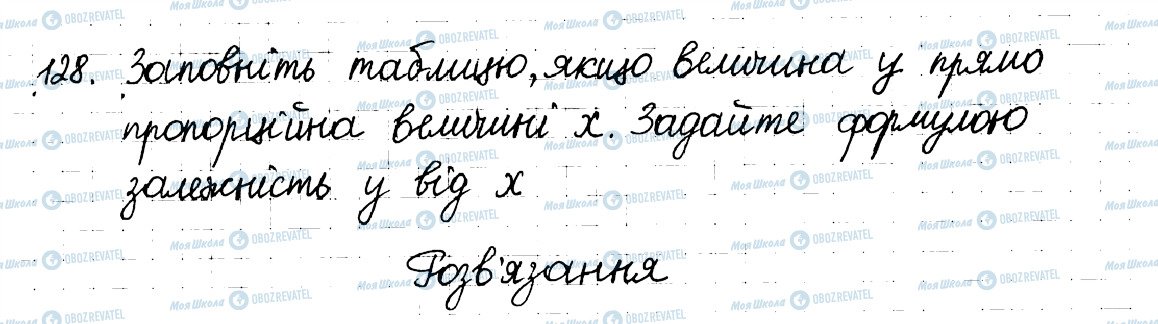 128. Заповніть таблицю, якщо величина y прямо
пропорційна величині x. Задайте формулою
залежність y від x
Розв'язання